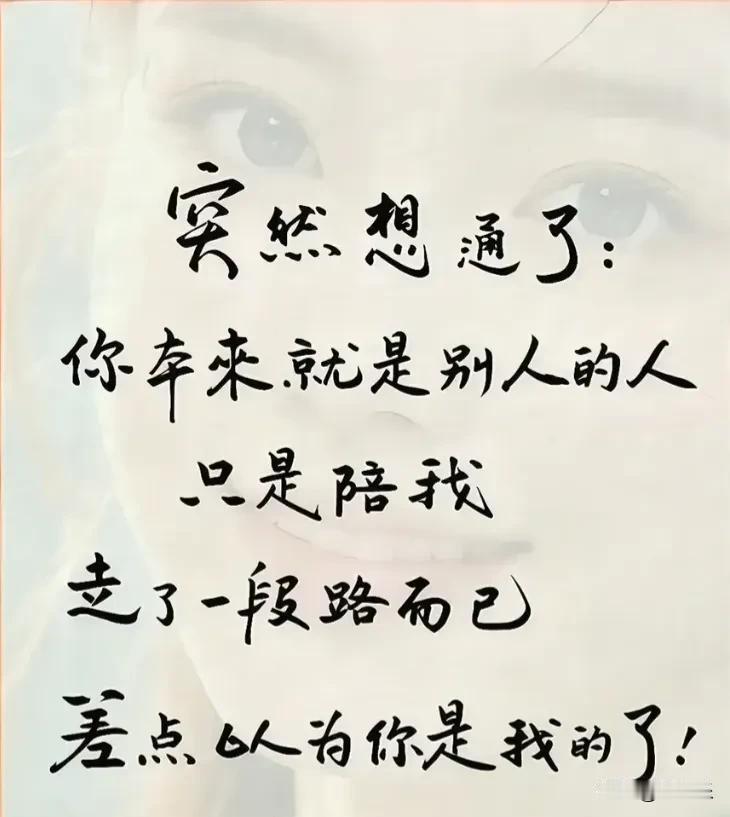 突然想通了：
你本來就是别人的人
只是陪我
走了一段路而已
差点以为你是我的了！